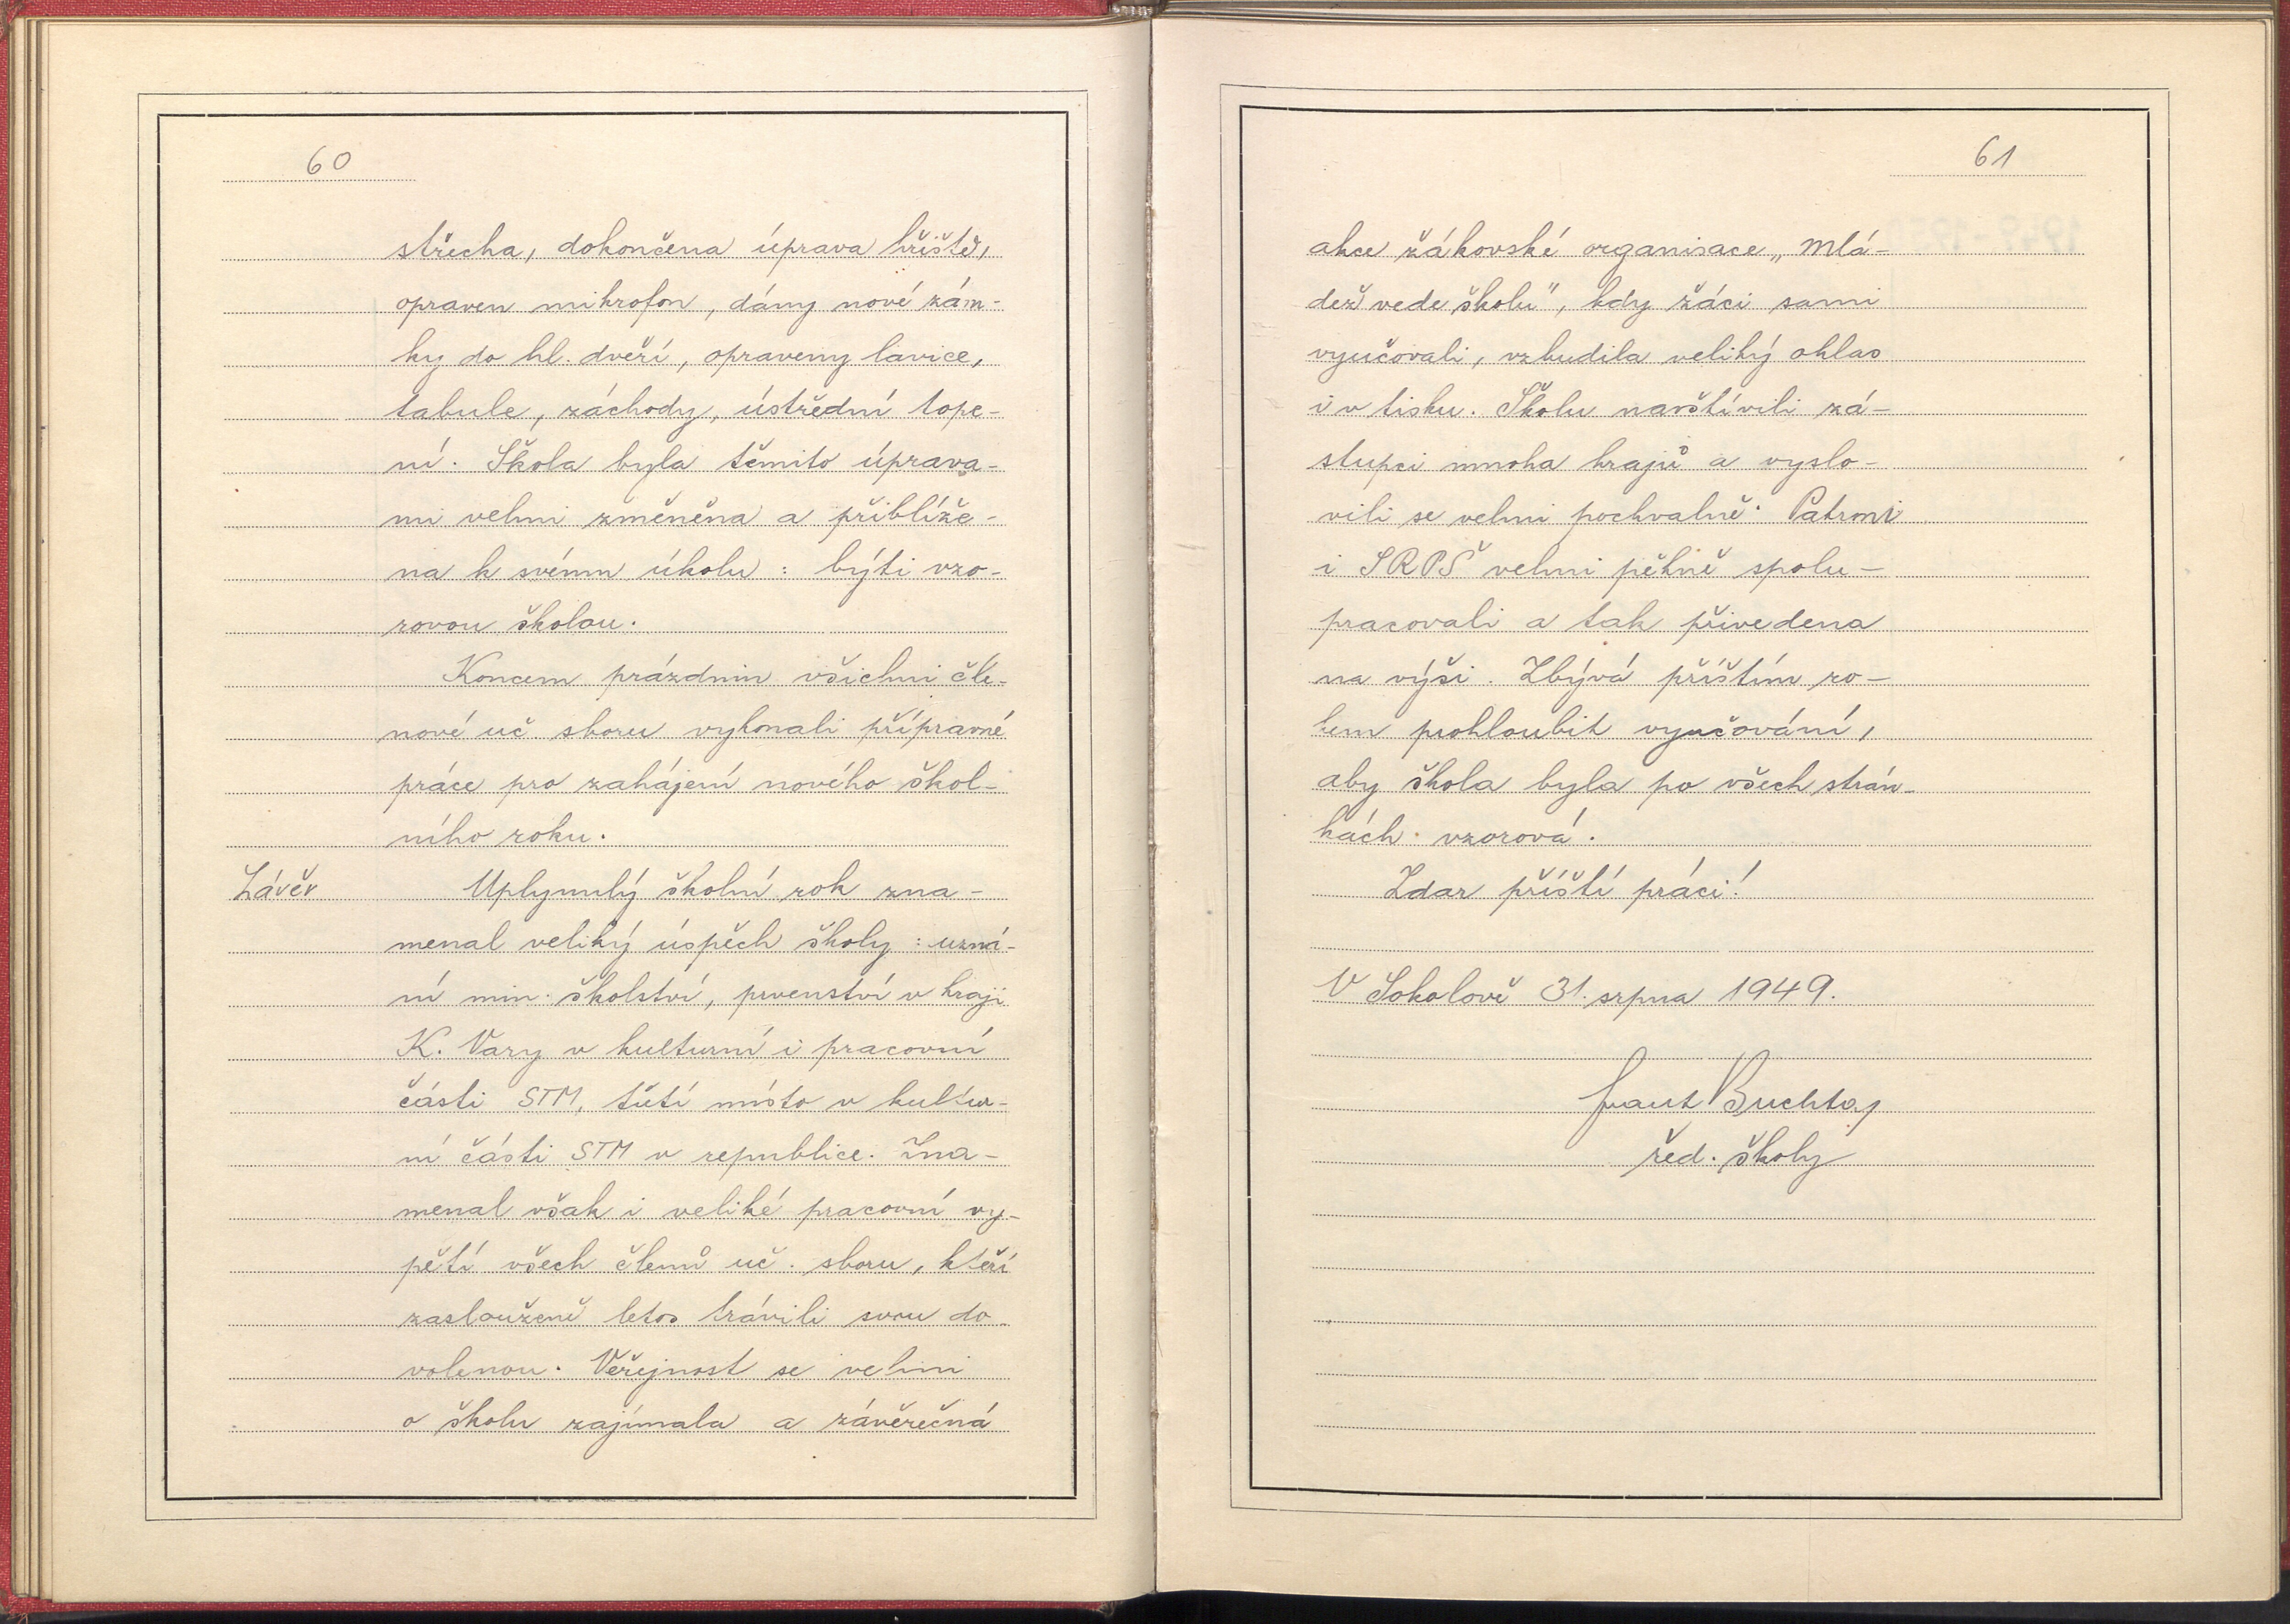 60
střecha, dokončena úprava hřiště,
opraven mikrofon, dány nové zám-
ky do hl. dveří, opraveny lavice,
tabule, záchody, ústřední tope-
ní. Škola byla těmito úprava-
mi velmi změněna a přiblíže-
na k svému úkolu: býti vzo-
rovou školou.
Koncem prázdnin všichni čle-
nové uč. sboru vykonali přípravné
práce pro zahájení nového škol-
ního roku.
Závěr Uplynulý školní rok zna-
menal veliký úspěch školy: uzná-
ní min. školství, prvenství v kraji
K. Vary v kulturní i pracovní
části STM, třetí místo v kultur-
ní části STM v republice. Zna-
menal však i veliké pracovní vy-
pětí všech členů uč. sboru, kteří
zaslouženě letos trávili svou do-
volenou. Veřejnost se velmi
o školu zajímala a závěrečná
61
akce žákovské organisace „Mlá-
dež vede školu", kdy žáci sami
vyučovali, vzbudila veliký ohlas
i v tisku. Školu navštívili zá-
stupci mnoha krajů a vyslo-
vili se velmi pochvalně. Patroni
i SRPŠ velmi pěkně spolu-
pracovali a tak přivedena
na výši. Zbývá příštím ro-
kem prohloubit vyučování,
aby škola byla po všech strán-
kách vzorová.
Zdar příští práci!
V Sokolově 31. srpna 1949.
Frant Buchtaj
řed. školy